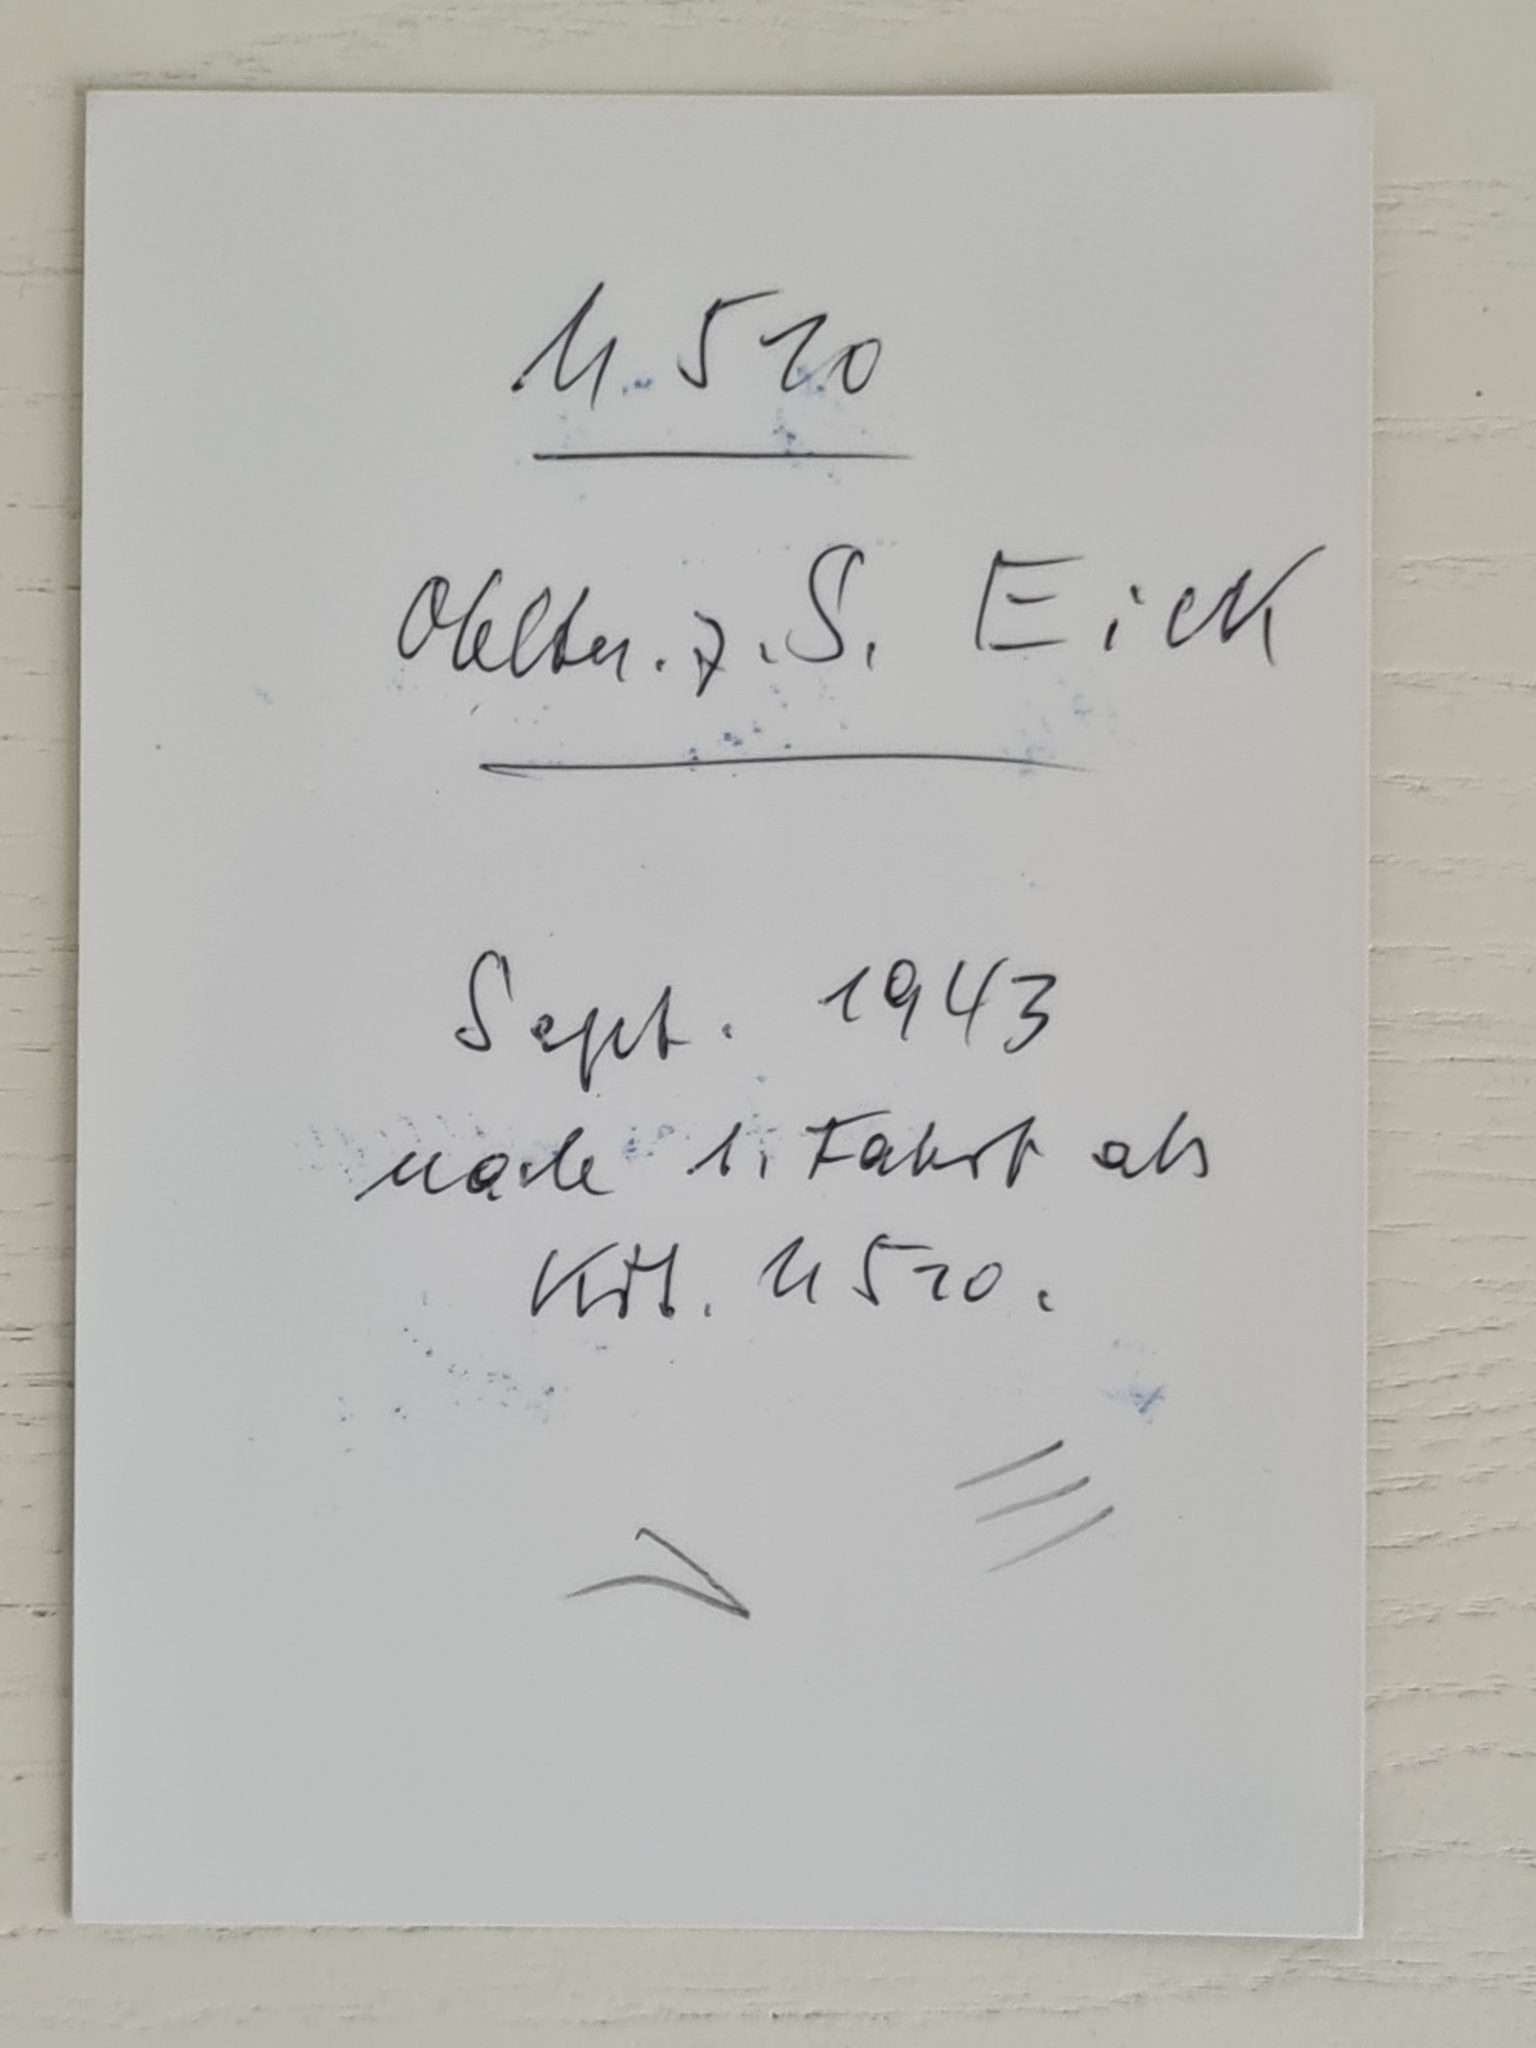 U 510
Obltn. z. S. Eick
Sept. 1943
nach 1. Fahrt als
Kdt. U 510.